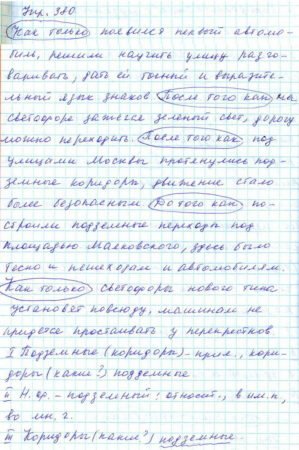 Упр. 380
Как только появился первый автомо-
биль, решили научить улицу разго-
варивать, дать ей точный и выразите-
льный язык знаков. После того как, на
светофоре зажегся зеленый свет, дорогу
можно переходить. После того как под
улицами Москвы протянулись под-
земные коридоры, движение стало
более безопасным. До того как по-
строили подземные переходы под
площадью Маяковского, здесь было
тесно и пешеходам и автомобилям.
Как только светофоры нового типа
установят повсюду, машинам не
придется простаивать у перекрестков
I Подземные (коридоры) - прил., кори-
доры (какие?) подземные
II Н.ф. - подземный; относит., в им.п,
во мн. г.
III Коридоры (какие?) подземные.